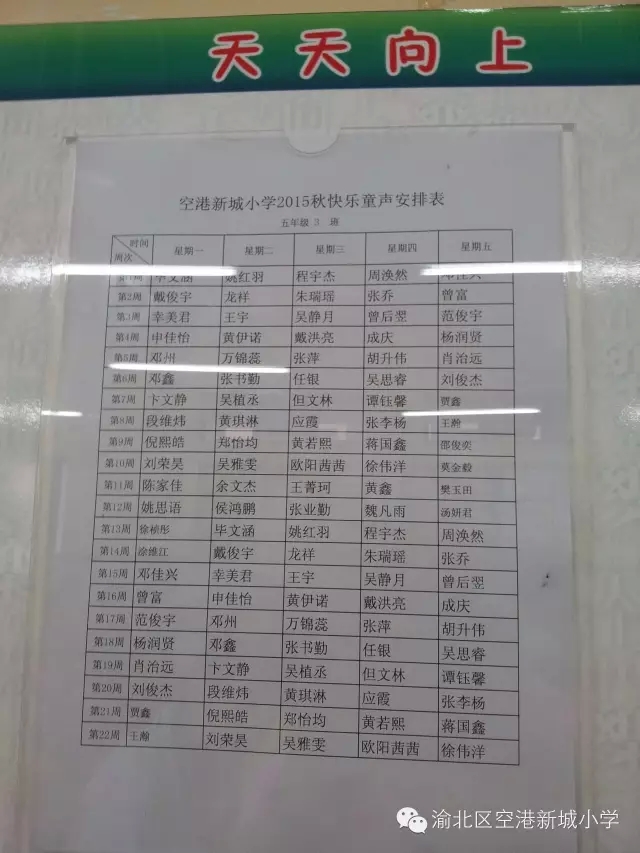 天天向上
空港新城小学2015秋快乐童声安排表
五年级 3 班
时间 周次 星期一 星期二 星期三 星期四 星期五
毕文涵 姚红羽 程宇杰 周焕然 邓佳兴
第2周 戴俊宇 龙祥 朱瑞瑶 张乔 曾富
第3周 幸美君 王宇 吴静月 曾后翌 范俊宇
第4周 申佳怡 黄伊诺 戴洪亮 成庆 杨润贤
第5周 邓州 万锦蕊 张萍 胡升伟 肖治远
第6周 邓鑫 张书勤 任银 吴思睿 刘俊杰
第7周 卞文静 吴植丞 但文林 谭钰馨 贾鑫
第8周 段维炜 黄琪淋 应霞 张李杨 王瀚
第9周 倪熙皓 郑怡均 黄若熙 蒋国鑫 邵俊奕
第10周 刘荣昊 吴雅雯 欧阳茜茜 徐伟洋 莫金毅
第11周 陈家佳 余文杰 王菁珂 黄鑫 樊玉田
第12周 姚思语 侯鸿鹏 张业勤 魏凡雨 汤妍君
第13周 徐桢彤 毕文涵 姚红羽 程宇杰 周焕然
第14周 涂维江 戴俊宇 龙祥 朱瑞瑶 张乔
第15周 邓佳兴 幸美君 王宇 吴静月 曾后翌
第16周 曾富 申佳怡 黄伊诺 戴洪亮 成庆
第17周 范俊宇 邓州 万锦蕊 张萍 胡升伟
第18周 杨润贤 邓鑫 张书勤 任银 吴思睿
第19周 肖治远 卞文静 吴植丞 但文林 谭钰馨
第20周 刘俊杰 段维炜 黄琪淋 应霞 张李杨
第21周 贾鑫 倪熙皓 郑怡均 黄若熙 蒋国鑫
第22周 王瀚 刘荣昊 吴雅雯 欧阳茜茜 徐伟洋
渝北区空港新城小学